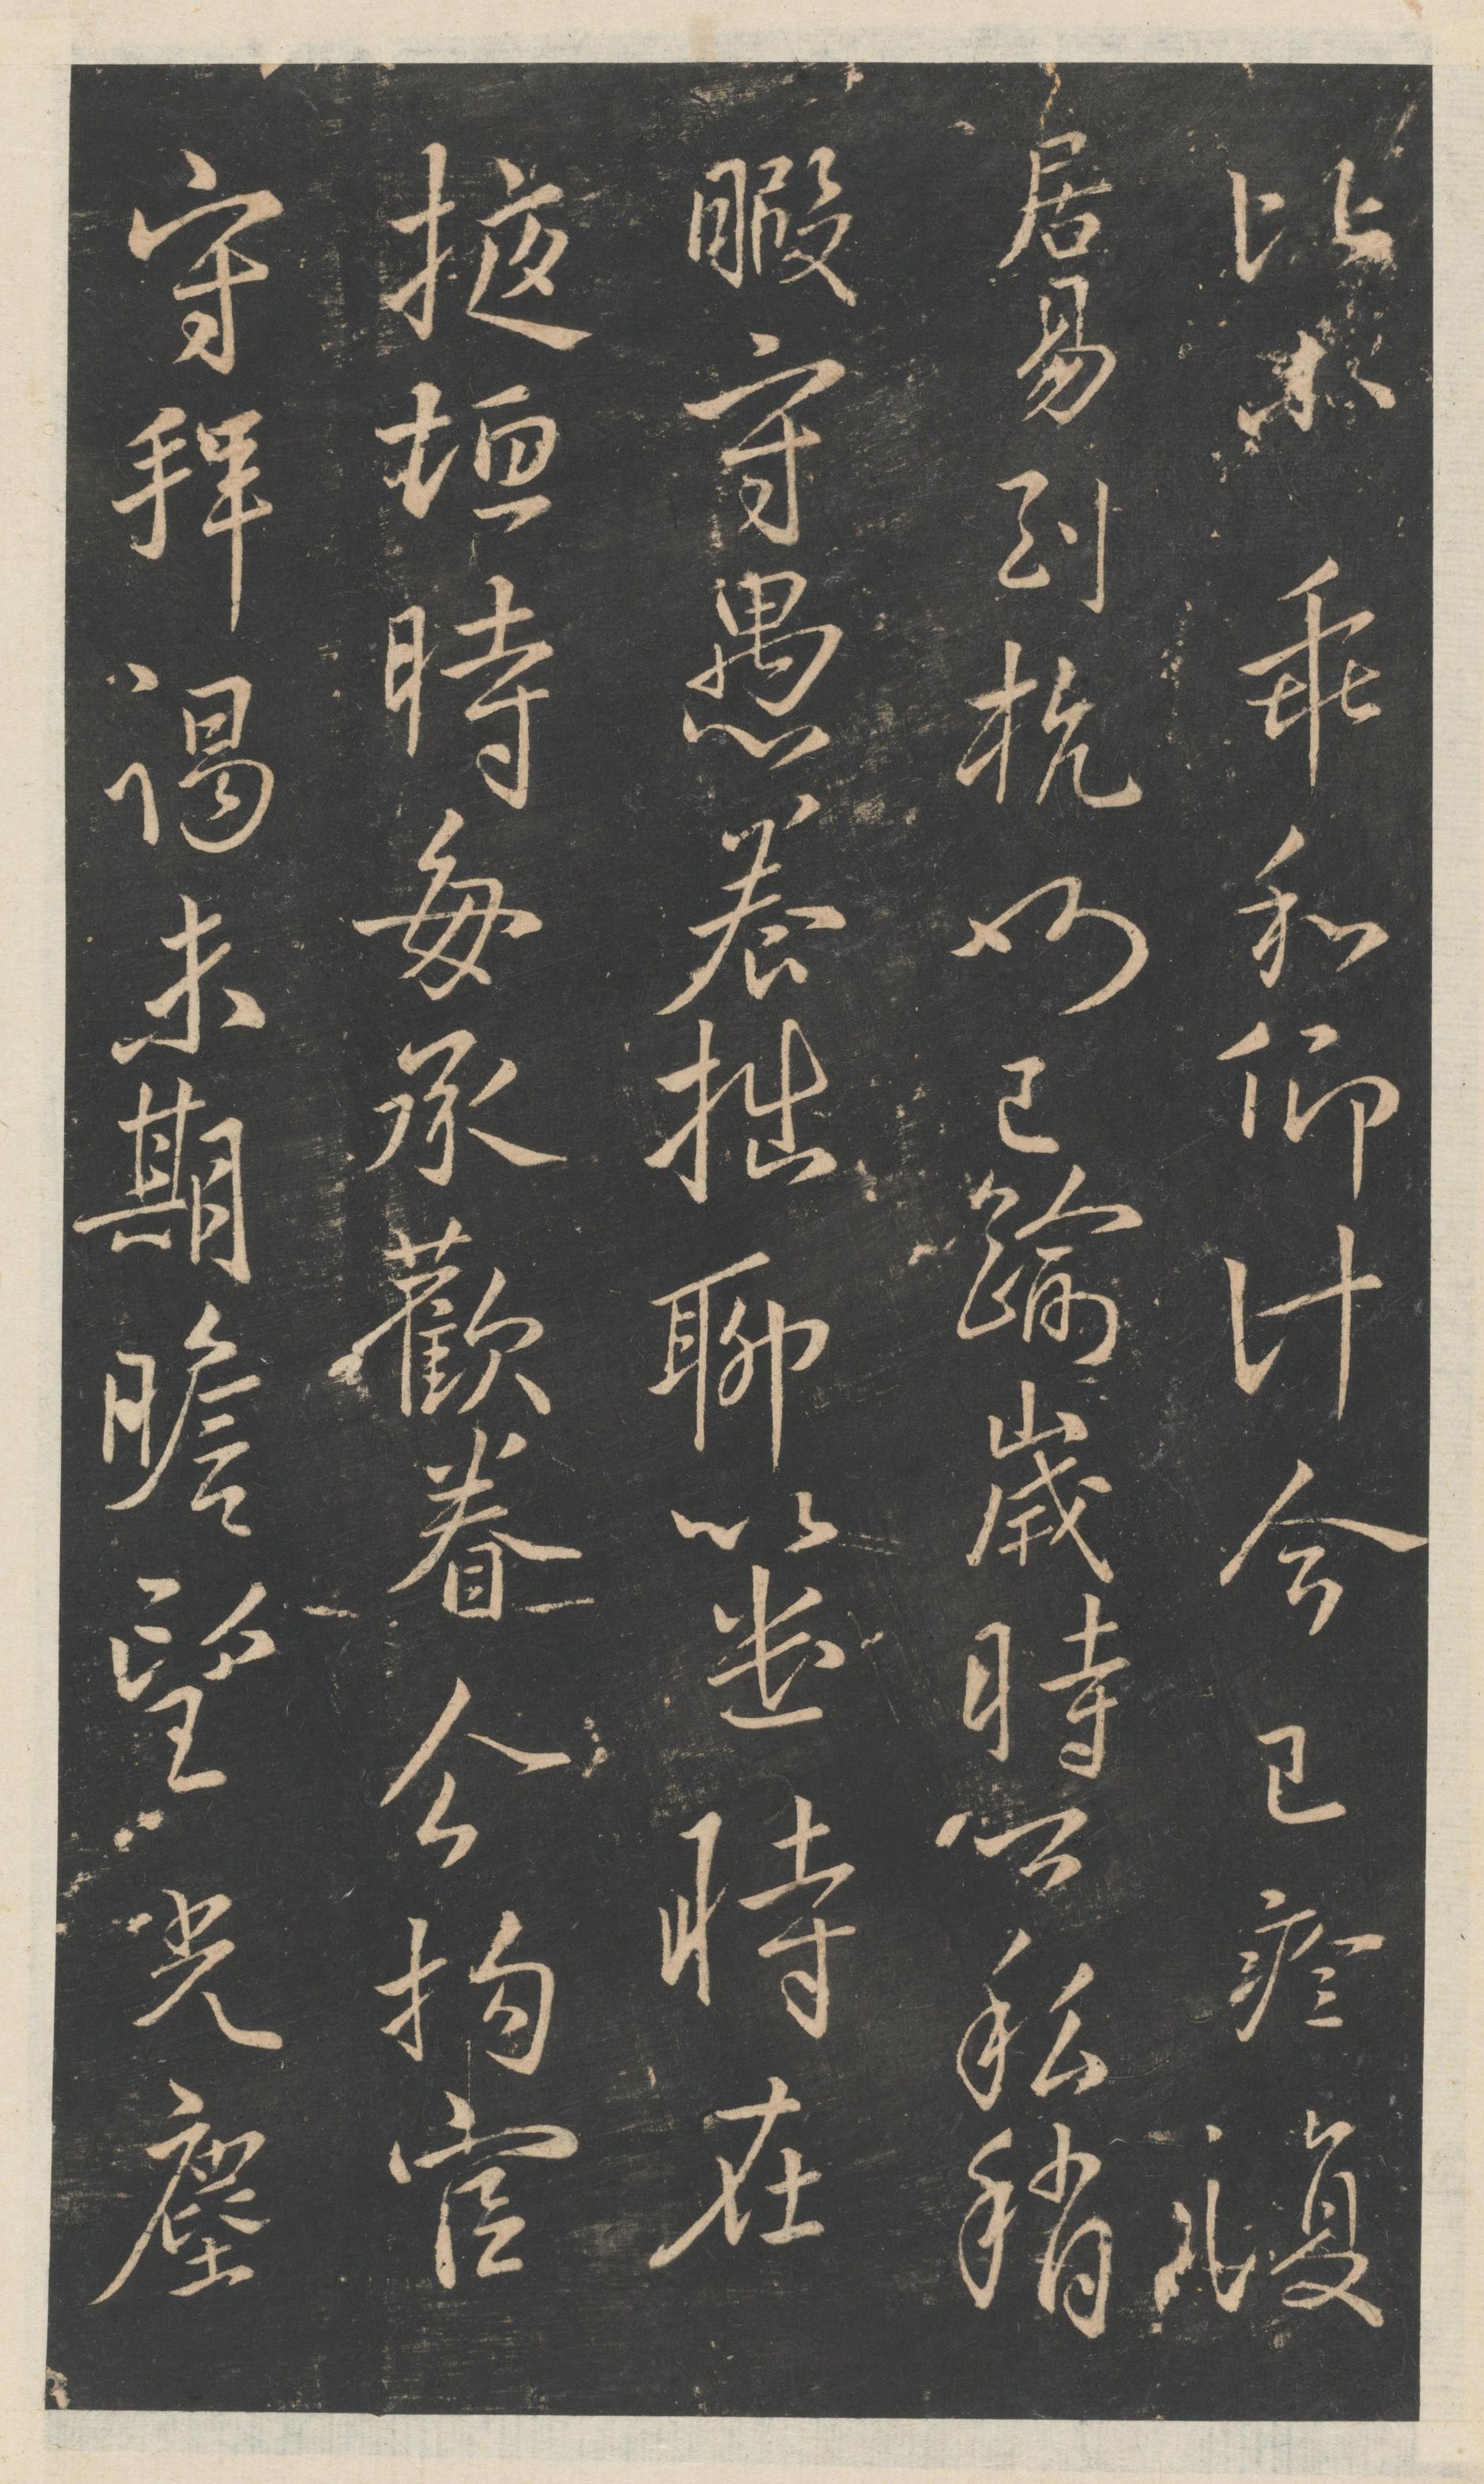 比來乖和仰計今已痊復礼
居易到杭州已踰歲時公私稍
暇守愚養拙聊以遣時在
掖垣時每承歡眷今拘官
守拜謁未期瞻望光塵